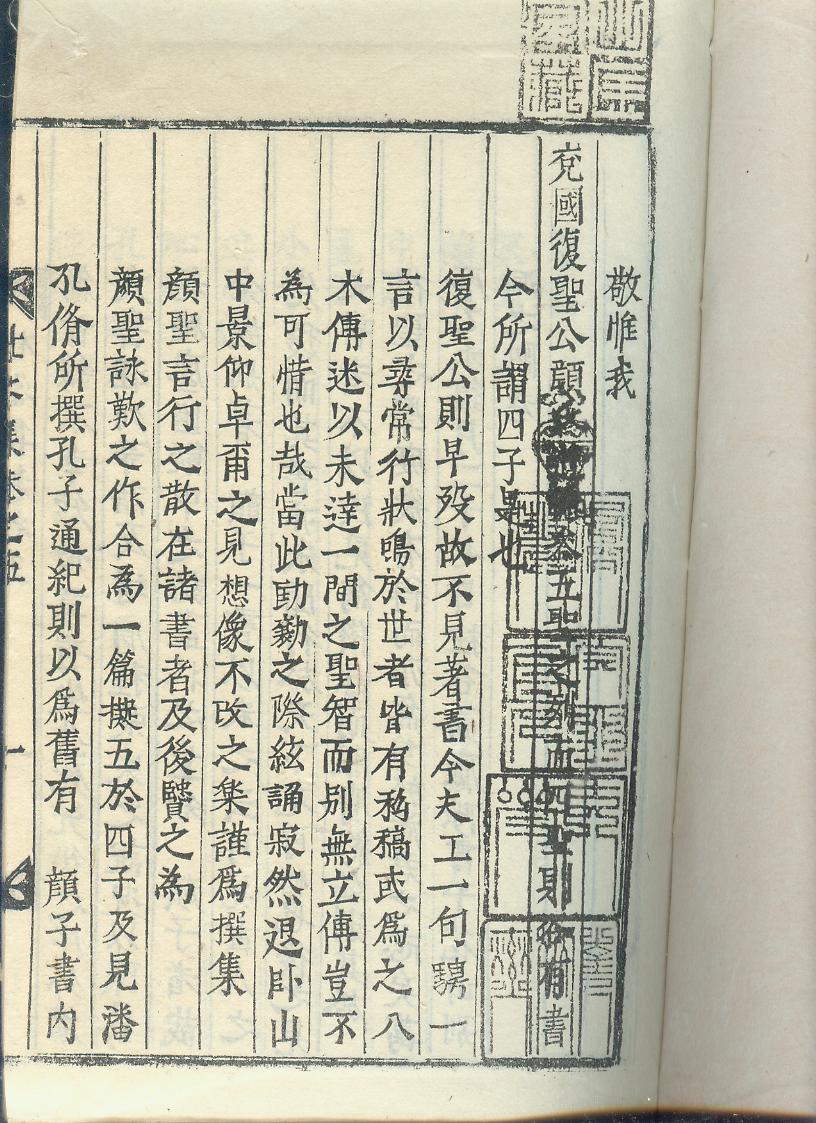 敬惟我
兖國復聖公顔 五聖之列而四聖則 有書
今所謂四子是也
復聖公則早歿故不見著書今夫工一句騁一
言以尋常行狀鳴於世者皆有私稿或爲之八
木傳迷以未達一間之聖智而别無立傳豈不
為可惜也哉當此動勷之際絃誦寂然退卧山
中景仰卓甭之見想像不改之樂謹爲撰集
顔聖言行之散在諸書者及後贒之為
顔聖詠歎之作合為一篇擬五於四子及見潘
孔脩所撰孔子通紀則以爲舊有 顔子書内
集卷之五
一